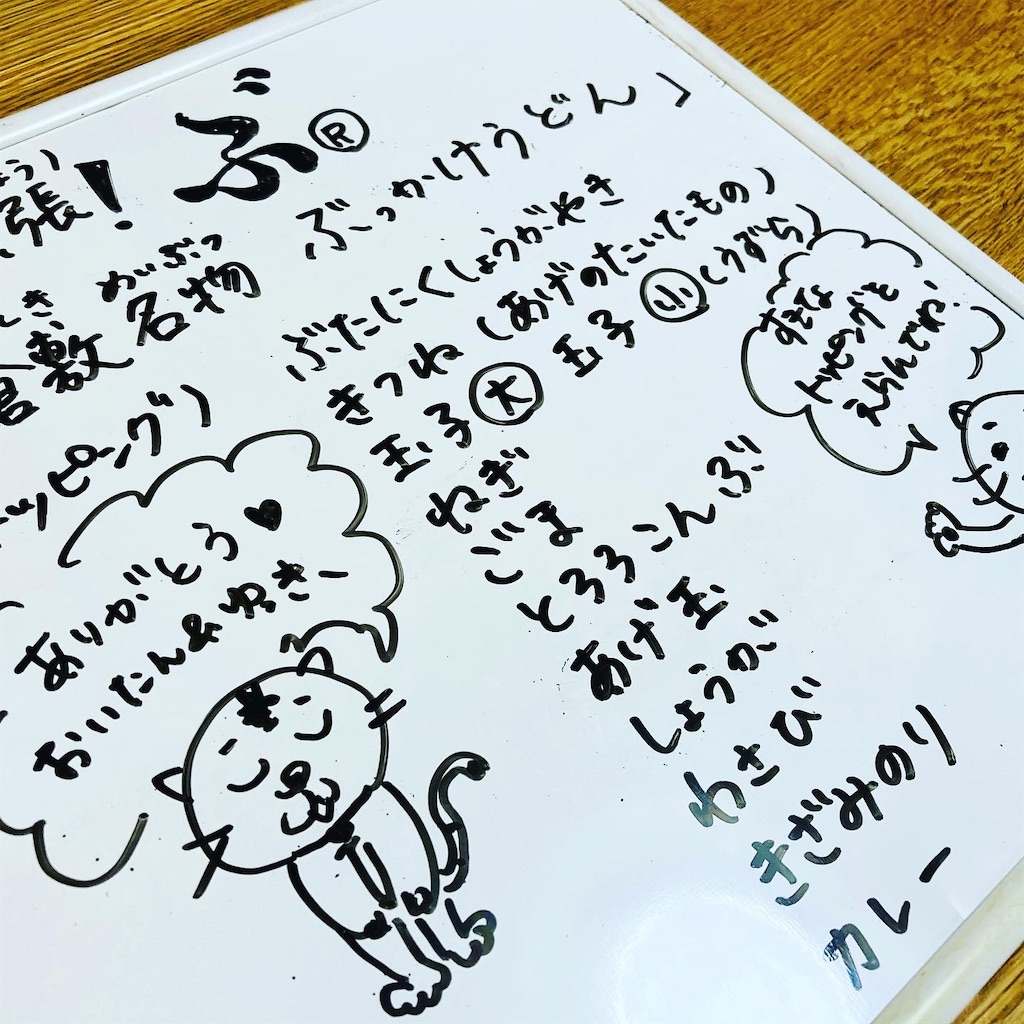 ょう
張! ぶ®
めいぶつ
倉敷名物 ぶっかけうどん」
ッピング)
ぶたにくしょうがやき
きつね(あげのたいたもの)
玉子大 玉子小(うずら)
ねぎ
ごま
とろろこんぶ
あげ玉
しょうが
わさび
きざみのり
カレー
すきな
トッピングを
えらんでね!
ありがとう♥
おいたん&ゆっきー